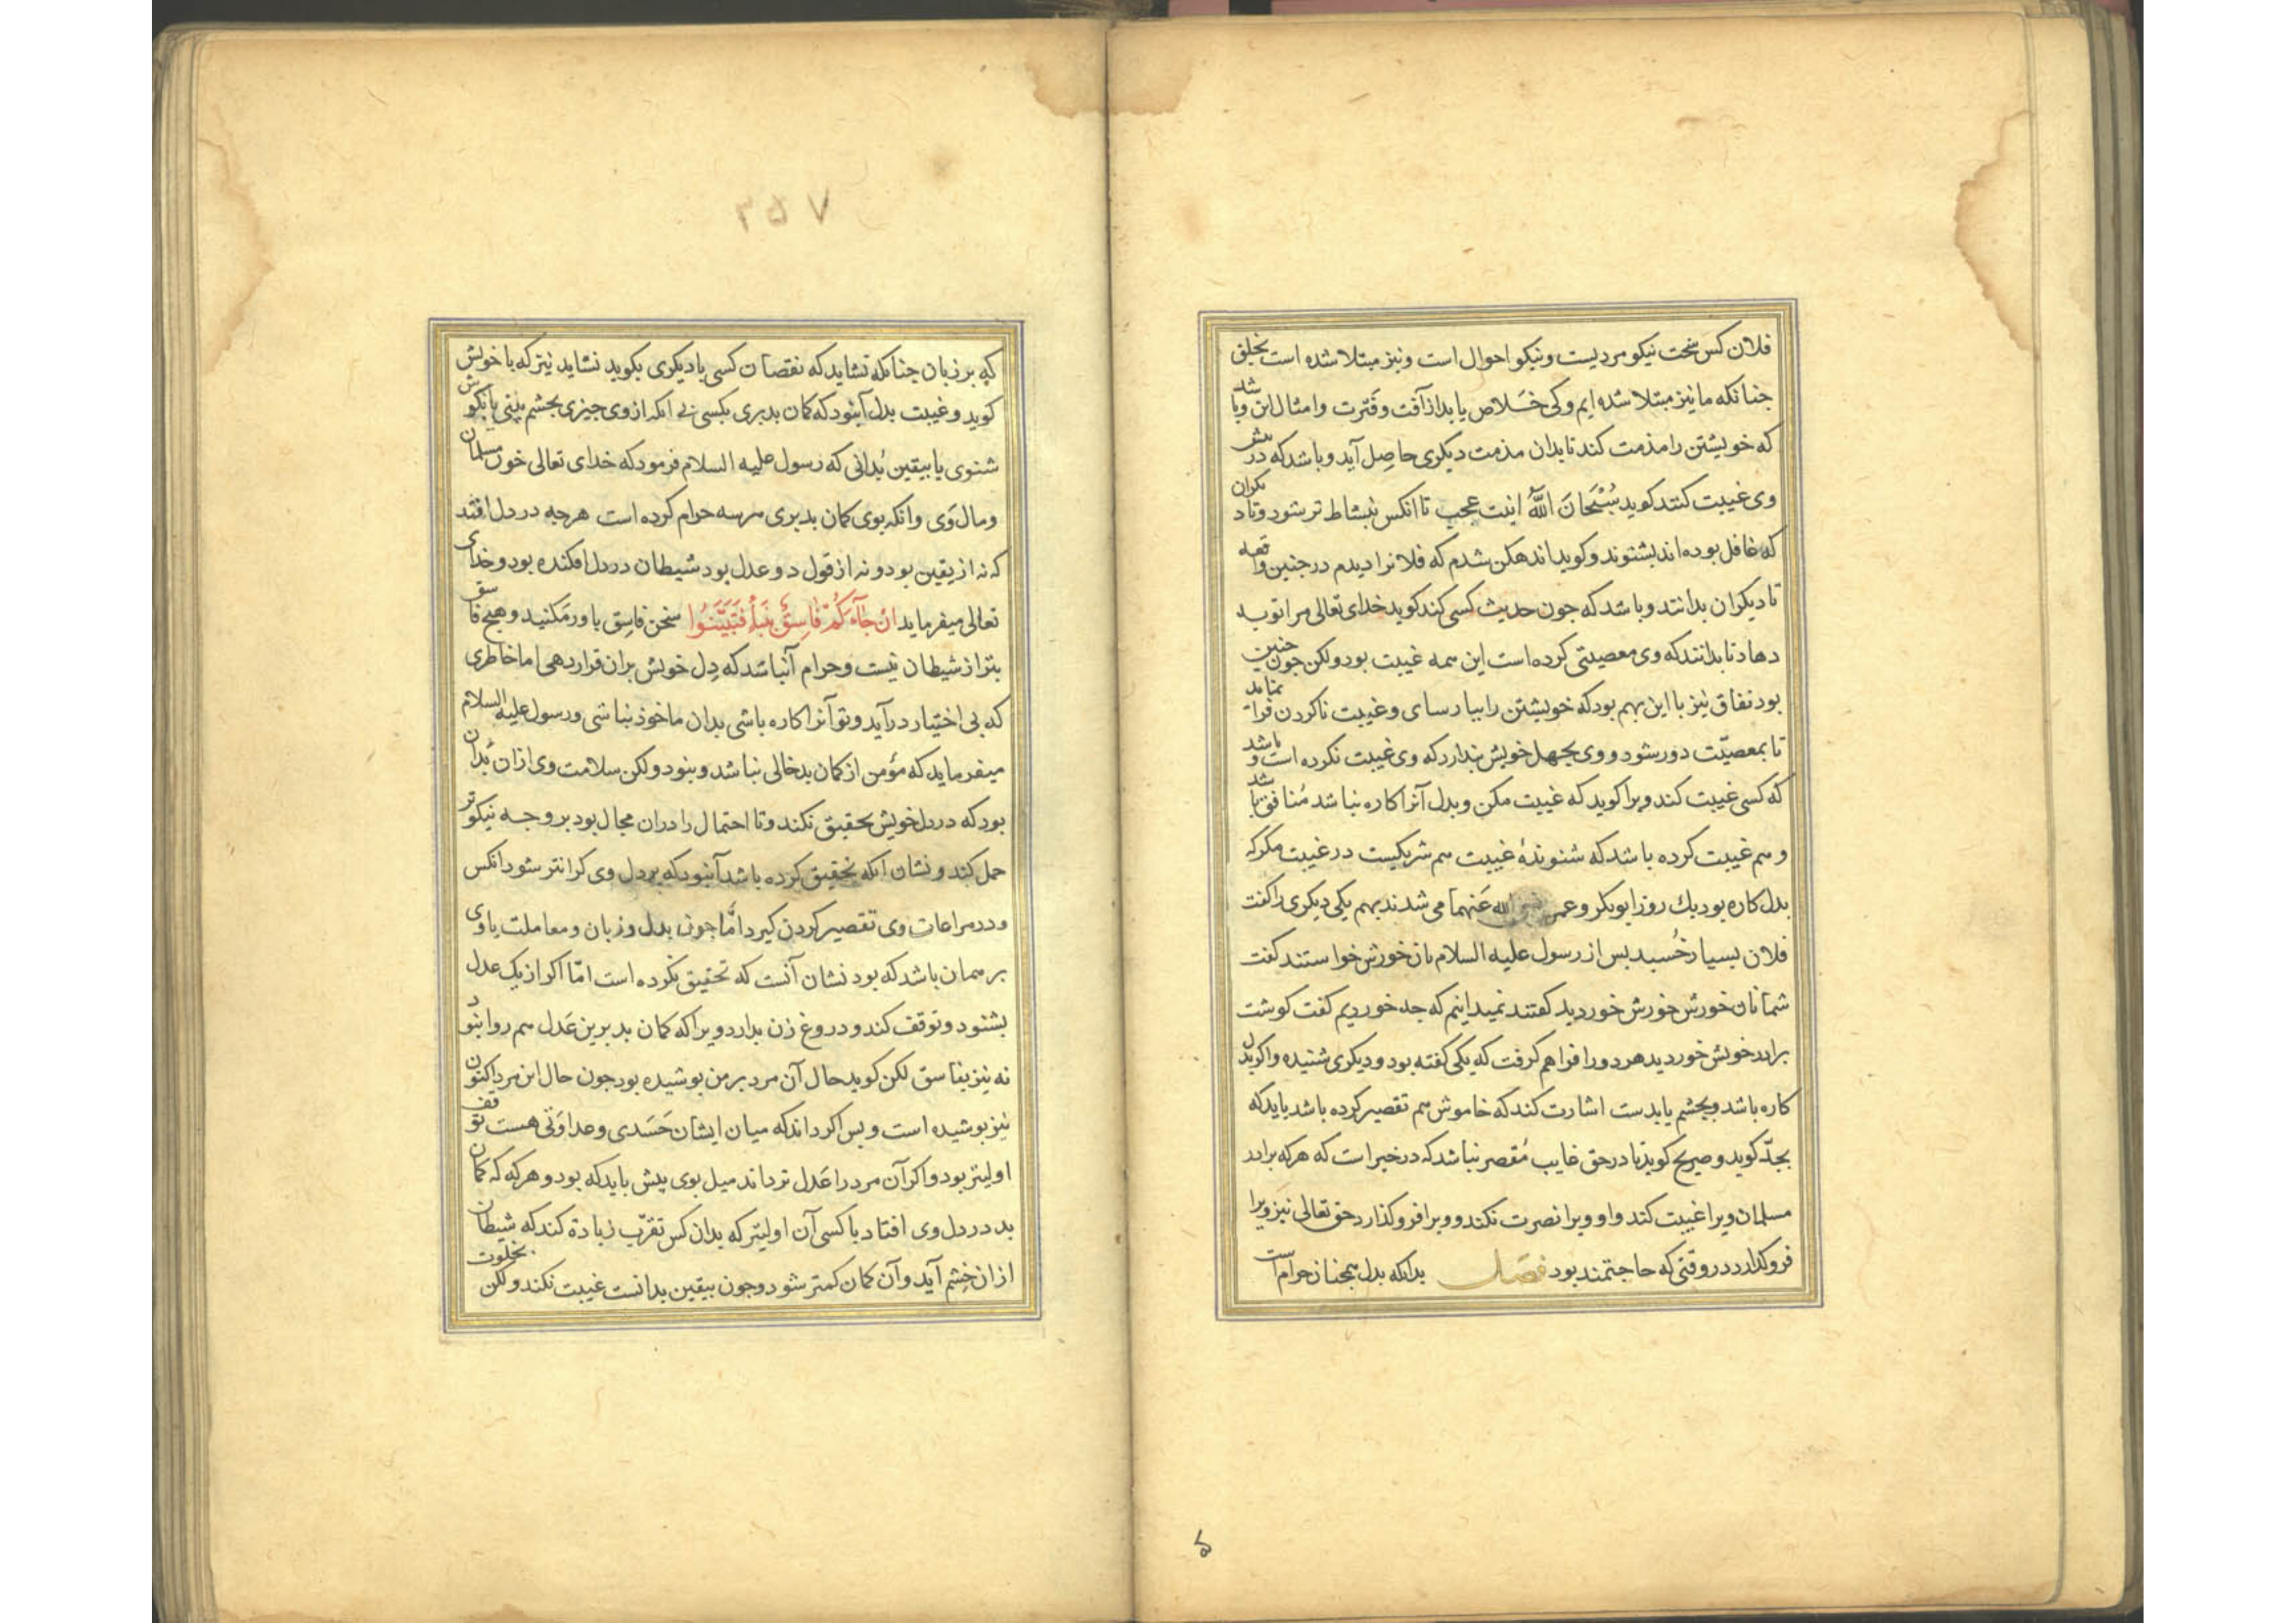 فلان کس سخت نیکو مردیست و نیکو احوال است و نیز مبتلا شده است بخلق
جنانکه ما نیز مبتلا شده ایم و کی خَلاص یابد از آفت و فَترت و امثال این و باشد
که خویشتن را مذمت کند تا بدان مذمت دیکری حاصِل آید و باشد که در پیش
وی غیبت کنند کوید سُبْحَانَ اللّٰه اینت عجب تا انکس بنشاط تر شود و تا دیکران
که غافل بوده اند بشنوند و کوید اندهکن شدم که فلانرا دیدم در جنین واقعه
تا دیکران بدانند و باشد که جون حدیث کسی کند کوید خدای تعالی مرا توبه
دهاد تا بدانند که وی معصیتی کرده است این همه غیبت بود ولکن جون جنین
بود نفاق نیز با این بهم بود که خویشتن را بپارسای و غیبت ناکردن فرا نماید
تا بمعصیّت دور شود و وی بجهل خویش بندارد که وی غیبت نکرده است و باشد
که کسی غیبت کند ویرا کوید که غیبت مکن و بدل آنرا کاره نباشد مُنافق باشد
و هم غیبت کرده باشد که شنوندهٔ غیبت هم شریکیست در غیبت مکر که
بدل کاره بود یك روز ابوبکر و عمر رضی الله عَنهما می شدند بهم یکی دیکری را کفت
فلان بسیار خُسبد بس از رسول علیه السلام نان خورش خواستند کفت
شما نان خورش خورش خوردید کفتند نمیدانیم که جه خوردیم کفت کوشت
برادر خویش خوردید هر دو را فراهم کرفت که یکی کفته بود و دیکری شنیده و اکر بدل
کاره باشد و بجشم یا بدست اشارت کند که خاموش هم تقصیر کرده باشد باید که
بجدّ کوید و صریح کوید تا در حق غایب مُقصر نباشد که در خبر است که هر که برادر
مسلمان ویرا غیبت کند و او ویرا نصرت نکند و ویرا فرو کذارد حق تعالی نیز ویرا
فرو کذارد در وقتی که حاجتمند بود فصل بدانکه بدل همجنان حرام است
۳۵۷
که بر زبان جنانکه نشاید که نقصان کسی با دیکری بکوید نشاید نیز که با خویش
کوید و غیبت بدل آنبود که کمان بد بری بکسی بی انکه از وی جیزی بجشم بینی یا بکوش
شنوی یا بیقین بدانی که رسول علیه السلام فرمود که خدای تعالی خون مسلمان
و مال وَی و انکه بوی کمان بد بری هر سه حرام کرده است هرجه در دل افتد
که نه از یقین بود و نه از قول دو عدل بود شیطان در دل افکنده بود و خدای
تعالی میفرماید ان جَآءَکُمْ فَاسِقٌ بِنَبَأٍ فَتَبَیَّنُوا سخن فاسِق باور مَکنید و هیج فاسق
بتر از شیطان نیست و حرام آنباشد که دِل خویش بران قرار دهی اما خاطری
که بی اختیار درآید و تو آنرا کاره باشی بدان ماخوذ نباشی و رسول علیه السلام
میفرماید که مؤمن از کمان بد خالی نباشد و بنود ولکن سلامت وی ازان بُدان
بود که در دل خویش تحقیق نکند و تا احتمال را دران مجال بود بر وجه نیکوتر
حمل کند و نشان انکه تحقیق کرده باشد آنبود که بر دل وی کرانتر شود انکس
و در مراعات وی تقصیر کردن کیرد امّا جون بدل و زبان و معاملت با وی
بر همان باشد که بود نشان آنست که تحقیق نکرده است امّا اکر از یک عدل
بشنود و توقف کند و دروغ زن ندارد ویرا که کمان بد برین عَدل هم روا نبود
نه نیز بفاسق لکن کوید حال آن مرد بر من بوشیده بود جون حال این مرد اکنون
نیز بوشیده است و بس اکر داند که میان ایشان حَسَدی و عداوَتی هست توقف
اولیتر بود و اکر آن مرد را عَدل تر داند میل بوی بیش باید که بود و هر که که کمان
بد در دل وی افتاد با کسی آن اولیتر که بدان کس تقرّب زیادة کند که شیطان
ازان خِشم آید و آن کمان کمتر شود و جون بیقین بدانست غیبت نکند ولکن بخلوت